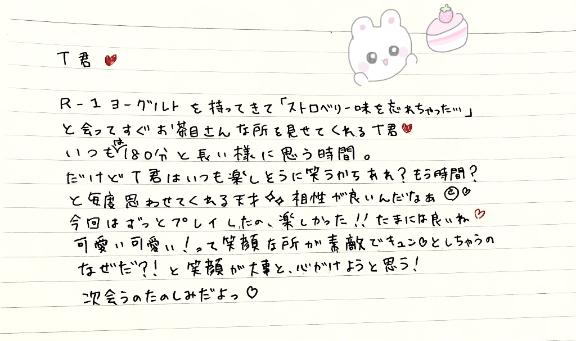 T君♥
R-1ヨーグルトを持ってきて「ストロベリー味を忘れちゃった…」
と会ってすぐお茶目さんな所を見せてくれるT君♥
いつもは180分と長い様に思う時間。
だけどT君はいつも楽しそうに笑うからあれ?もう時間?
と毎度思わせてくれる天才✧✧相性が良いんだなぁ☺♡
今回はずっとプレイしたの、楽しかった!!たまには良いね♡
可愛い可愛い!って笑顔な所が素敵でキュン♡としちゃうの
なぜだ?!と笑顔が大事と、心がけようと思う!
次会うのたのしみだよっ♡